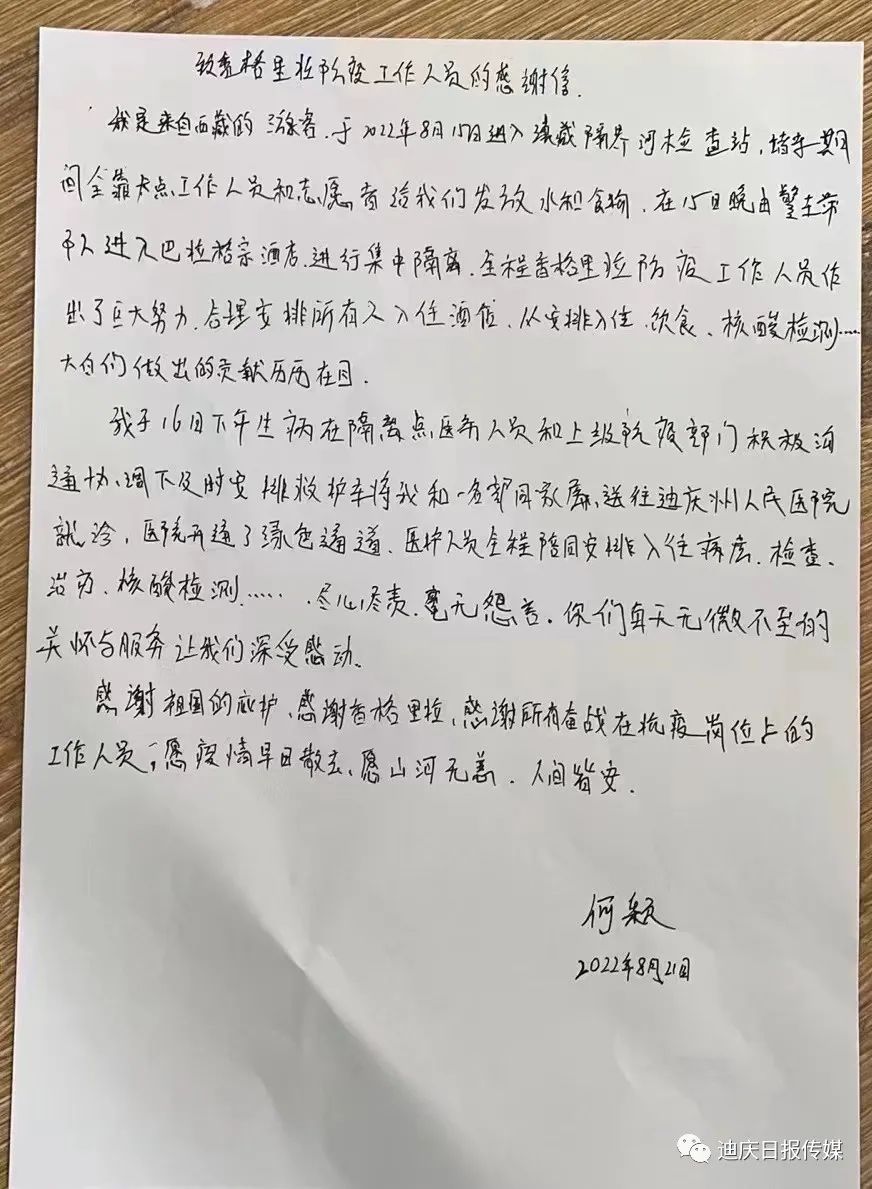 致香格里拉防疫工作人员的感谢信.
我是来自西藏的游客.于2022年8月15日进入滇藏隔界河检查站,堵车期
间全靠卡点工作人员和志愿者给我们发放水和食物.在15日晚由警车带
队进入巴拉格宗酒店.进行集中隔离.全程香格里拉防疫工作人员作
出了巨大努力.合理安排所有人入住酒店.从安排入住.饮食、核酸检测……
大白们做出的贡献历历在目.
我于16日下午生病在隔离点医务人员和上级抗疫部门积极沟
通协调下及时安排救护车将我和一名部同志.送往迪庆州人民医院
就诊,医院开通了绿色通道.医护人员全程陪同安排入住病房.检查.
治疗.核酸检测……尽心尽责.毫无怨言.你们每天无微不至的
关怀与服务让我们深受感动.
感谢祖国的庇护、感谢香格里拉,感谢所有奋战在抗疫岗位上的
工作人员,愿疫情早日散去、愿山河无恙.人间皆安.
何颖
2022年8月21日
迪庆日报传媒